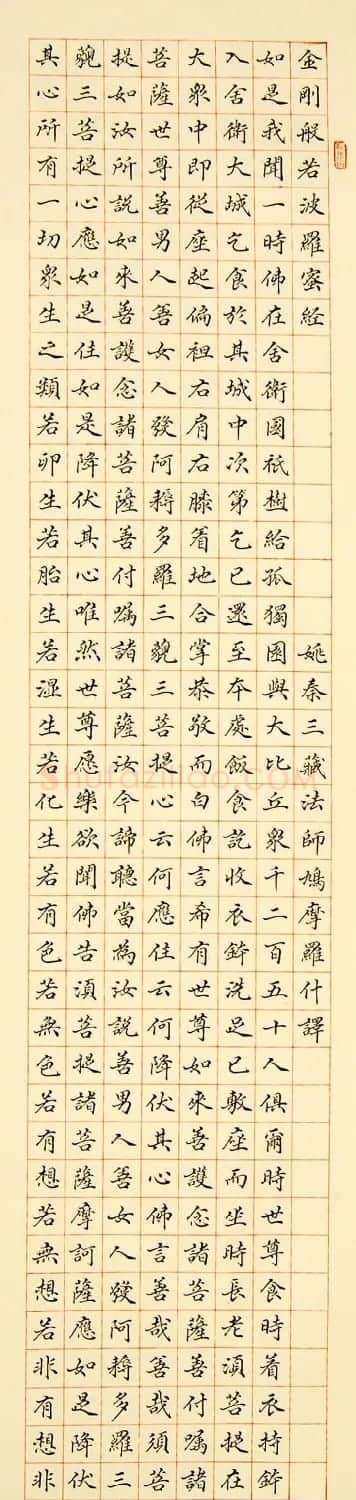 金剛般若波羅蜜經 姚秦三藏法師鳩摩羅什譯
如是我聞一時佛在舍衛國祇樹給孤獨園與大比丘衆千二百五十人俱爾時世尊食時着衣持鉢
入舍衛大城乞食於其城中次第乞已還至本處飯食訖收衣鉢洗足已敷座而坐時長老須菩提在
大衆中即從座起偏袒右肩右膝着地合掌恭敬而白佛言希有世尊如來善護念諸菩薩善付嘱諸
菩薩世尊善男人善女人發阿耨多羅三藐三菩提心云何應住云何降伏其心佛言善哉善哉須菩
提如汝所說如來善護念諸菩薩善付嘱諸菩薩汝今諦聽當為汝說善男人善女人發阿耨多羅三
藐三菩提心應如是住如是降伏其心唯然世尊愿樂欲聞佛告須菩提諸菩薩摩訶薩應如是降伏
其心所有一切衆生之類若卵生若胎生若湿生若化生若有色若無色若有想若無想若非有想非